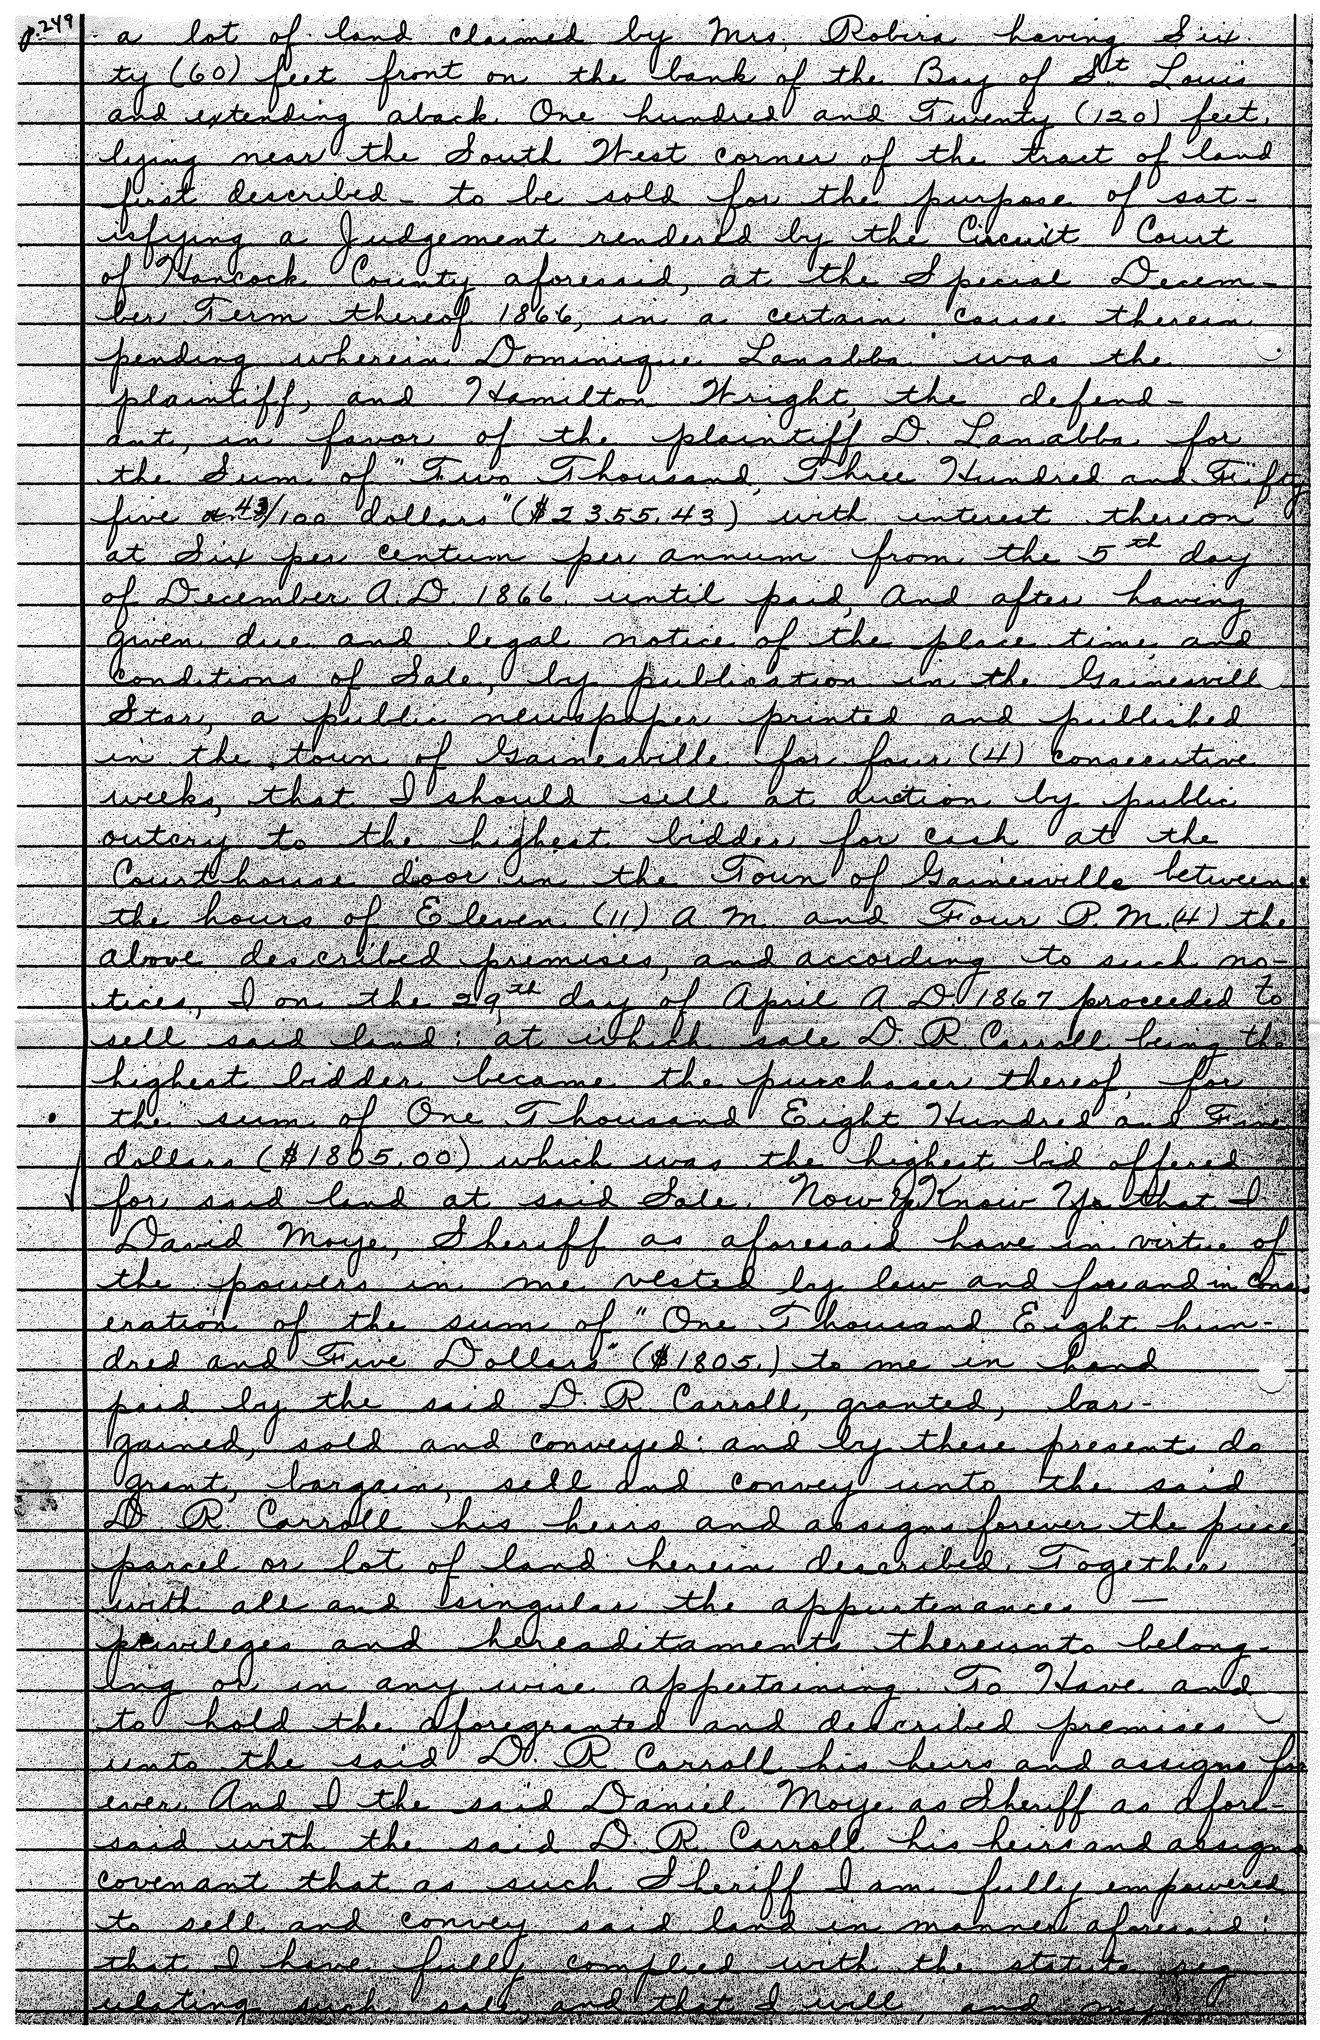 p.249
a lot of land claimed by Mrs. Robira having Six
ty (60) feet front on the bank of the Bay of St. Louis
and extending aback One hundred and Twenty (120) feet,
lying near the South West corner of the tract of land
first described - to be sold for the purpose of sat-
isfying a Judgement rendered by the Circuit Court
of Hancock County aforesaid, at the Special Decem-
ber Term thereof 1866, in a certain cause therein
pending wherein Dominique Lanabba was the
plaintiff, and Hamilton Wright, the defend-
ant, in favor of the plaintiff D. Lanabba for
the Sum of "Two Thousand, Three Hundred and Fifty
five 43/100 dollars" ($2355.43) with interest thereon
at Six per centum per annum from the 5th day
of December A.D. 1866 until paid, And after having
given due and legal notice of the place time, and
conditions of Sale, by publication in the Gainesville
Star, a public newspaper printed and published
in the town of Gainesville for four (4) consecutive
weeks, that I should sell at auction by public
outcry to the highest bidder for cash at the
Courthouse door in the Town of Gainesville between
the hours of Eleven (11) A.M. and Four P.M. (4) the
above described premises, and according to such no-
tices, I on the 29th day of April A.D. 1867 proceeded to
sell said land: at which sale D. R. Carroll being the
highest bidder became the purchaser thereof, for
the sum of One Thousand Eight Hundred and Five
dollars ($1805.00) which was the highest bid offered
for said land at said Sale. Now Know Ye that I
David Moye, Sheriff as aforesaid have in virtue of
the powers in me vested by law and for and in cons
eration of the sum of "One Thousand Eight hun-
dred and Five Dollars" ($1805.) to me in hand
paid by the said D. R. Carroll, granted, bar-
gained, sold and conveyed: and by these presents do
grant, bargain, sell and convey unto the said
D. R. Carroll his heirs and assigns forever the piece
parcel or lot of land herein described, Together
with all and singular the appurtenances —
privileges and hereaditaments thereunto belong-
ing or in any wise appertaining. To Have and
to hold the aforegranted and described premises
unto the said D. R. Carroll his heirs and assigns for
ever. And I the said Daniel Moye as Sheriff as afore-
said with the said D. R. Carroll his heirs and assigns
covenant that as such Sheriff I am fully empowered
to sell and convey said land in manner aforesaid:
that I have fully complied with the statute reg
ulating such sale, and that I will, and my